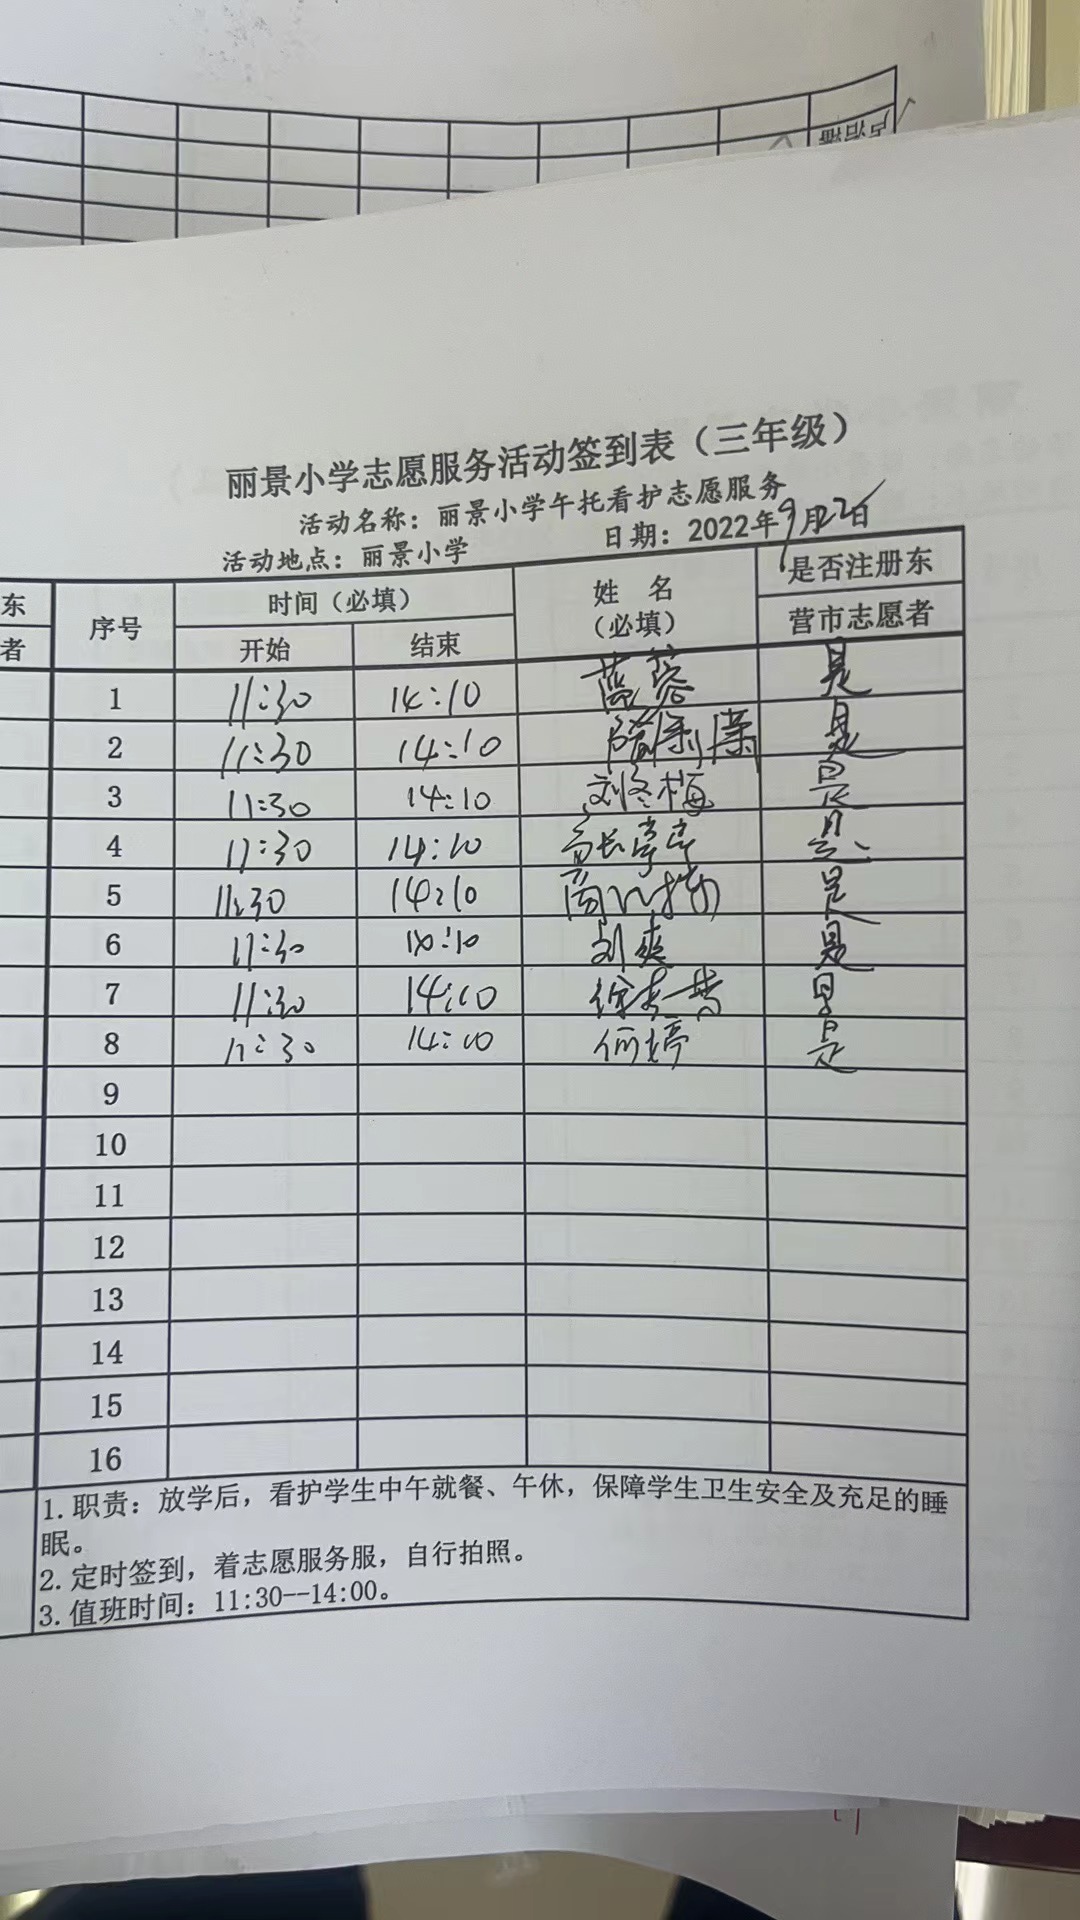 丽景小学志愿服务活动签到表（三年级）
活动名称：丽景小学午托看护志愿服务
活动地点：丽景小学 日期：2022年9月22日
东
者
序号 时间（必填） 姓 名 （必填） 是否注册东
开始 结束 营市志愿者
1 11:30 14:10 蓝蓉 是
2 11:30 14:10 是
3 11:30 14:10 刘冬梅 是
4 11:30 14:10 是
5 11:30 14:10 是
6 11:30 14:10 刘爽 是
7 11:30 14:10 是
8 11:30 14:10 何婷 是
9
10
11
12
13
14
15
16
1.职责：放学后，看护学生中午就餐、午休，保障学生卫生安全及充足的睡
眠。
2.定时签到，着志愿服务服，自行拍照。
3.值班时间：11:30--14:00。